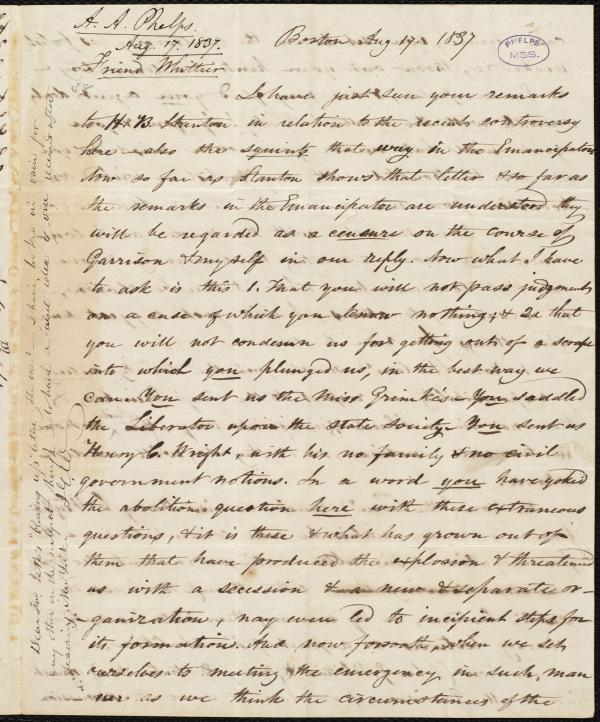 A. A. Phelps.
Aug. 17. 1837.
Boston Aug 17. 1837
PHELPS
MSS.
Friend Whittier
I have just seen your remarks
to H. B Stanton in relation to the recent controversy
here also the squints that way in the Emancipator
Now so far as Stanton shows that letter & so far as
the remarks in the Emancipator are understood they
will be regarded as a censure on the course of
Garrison & myself in our reply. Now what I have
to ask is this 1. That you will not pass judgment
on a case of which you know nothing; & 2d that
you will not condemn us for getting out of a scrape
into which you plunged us, in the best way we
can. You sent us the Miss Grimkés. You saddled
the Liberator upon the state society. You sent us
Henry C. Wright, with his no family & no civil
government notions. In a word you have yoked
the abolition question here with these extraneous
questions, & it is these & what has grown out of
them that have produced the explosion & threatened
us with a secession & a new & separate or-
ganization, nay even led to incipient steps for
its formation. And now forsooth, when we set
ourselves to meeting the emergency in such man
ner as we think the circumstances of the
Dear Sir Is this "blowing up" letter the one? — I have looked in vain for
any other on the subject